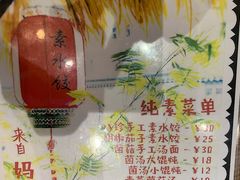 素水饺
来自
妈
纯素菜单
珍手工素水饺-￥30
茹手工素水饺-￥25
菌菇手工汤面-￥30
菌汤大馄饨-￥18
菌汤小馄饨-￥12